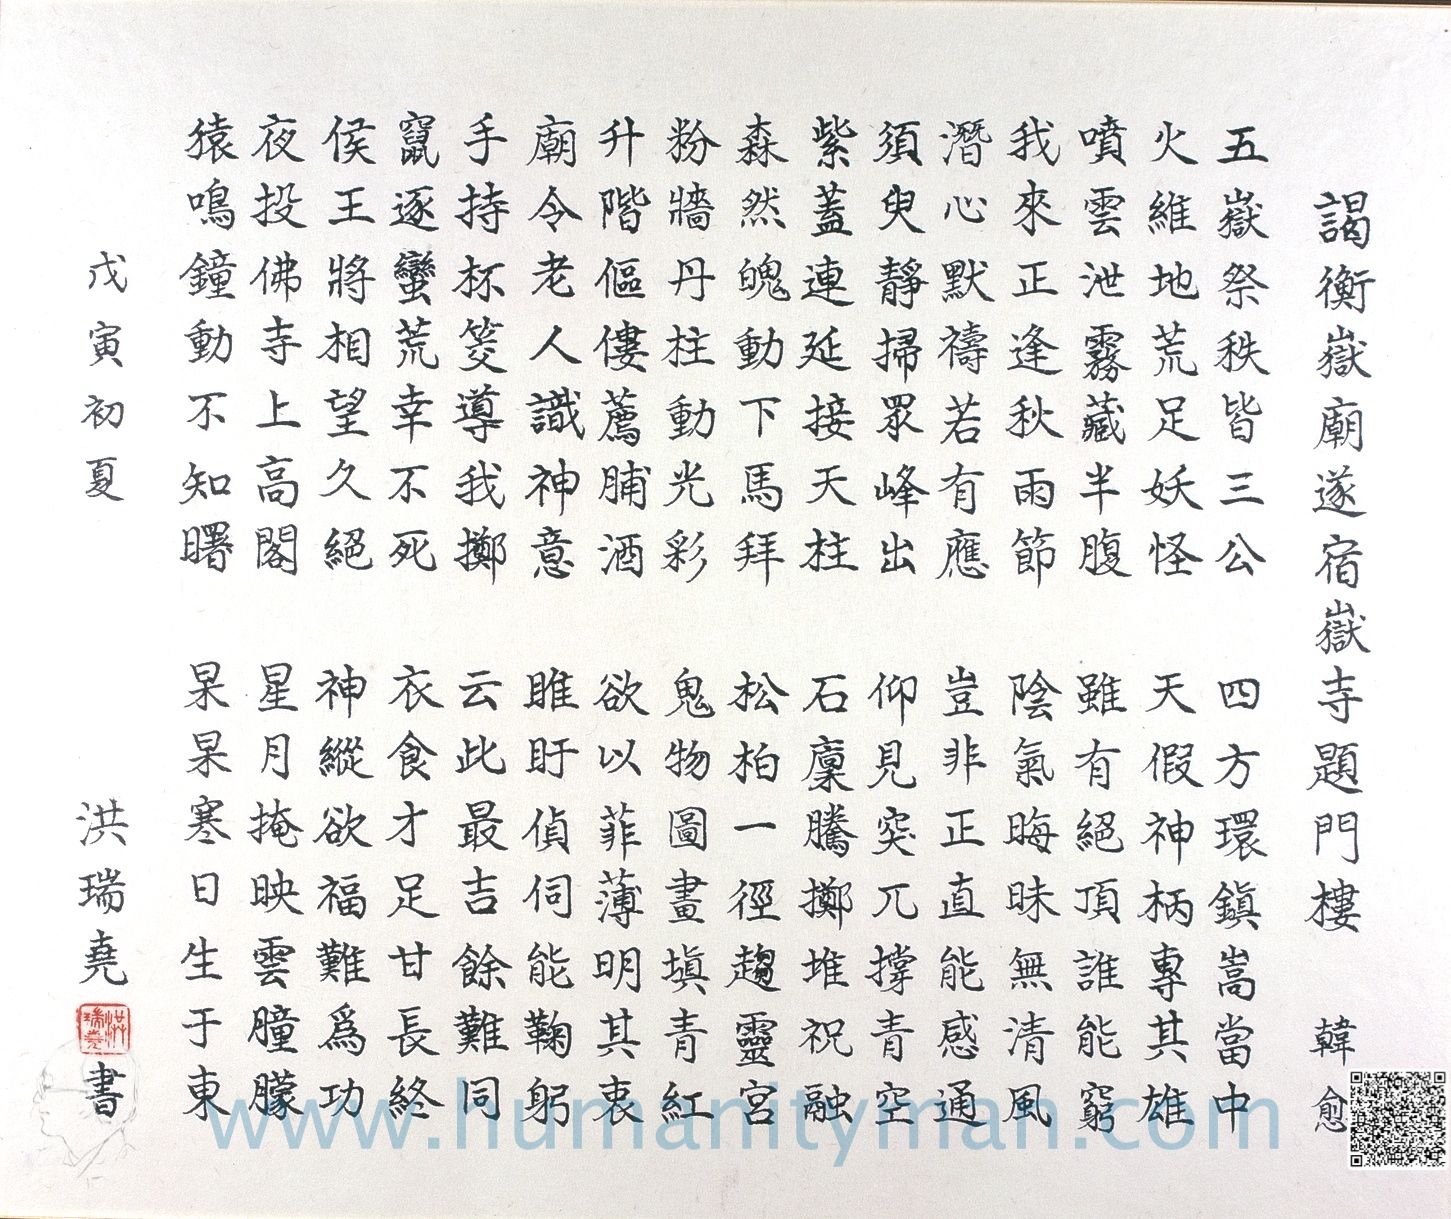 謁衡嶽廟遂宿嶽寺題門樓 韓愈
五嶽祭秩皆三公 四方環鎮嵩當中
火維地荒足妖怪 天假神柄專其雄
噴雲泄霧藏半腹 雖有絕頂誰能窮
我來正逢秋雨節 陰氣晦昧無清風
潛心默禱若有應 豈非正直能感通
須臾靜掃眾峰出 仰見突兀撐青空
紫蓋連延接天柱 石廩騰擲堆祝融
森然魄動下馬拜 松柏一徑趨靈宮
粉牆丹柱動光彩 鬼物圖畫填青紅
升階傴僂薦脯酒 欲以菲薄明其衷
廟令老人識神意 睢盱偵伺能鞠躬
手持杯筊導我擲 云此最吉餘難同
竄逐蠻荒幸不死 衣食才足甘長終
侯王將相望久絕 神縱欲福難為功
夜投佛寺上高閣 星月掩映雲朣朦
猿鳴鐘動不知曙 杲杲寒日生于東
戊寅初夏 洪瑞堯書
洪瑞堯
www.humanityman.com